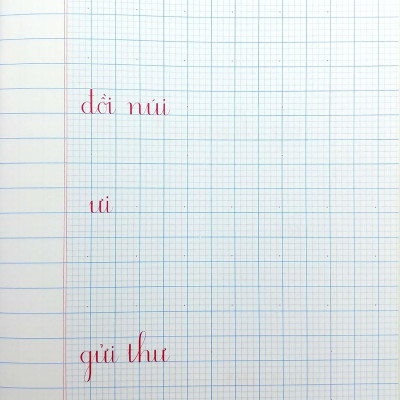 đồi núi
ưi
gửi thư